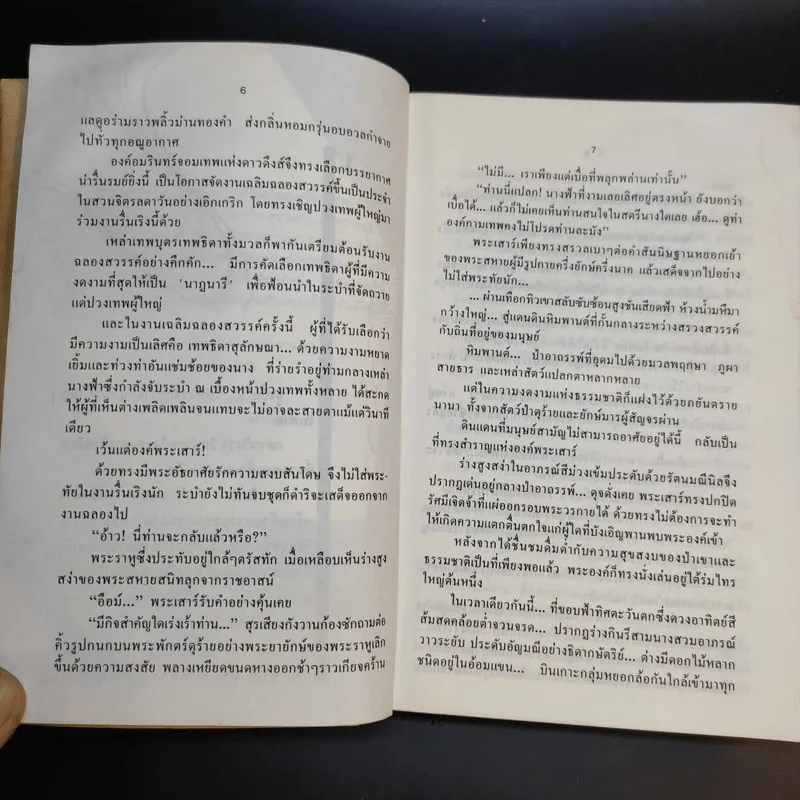 6
แลดูอร่ามราวพลิ้วม่านทองคำ ส่งกลิ่นหอมกรุ่นอบอวลกำจาย
ไปทั่วทุกอณูอากาศ
องค์อมรินทร์จอมเทพแห่งดาวดึงส์จึงทรงเลือกบรรยากาศ
น่ารื่นรมย์ยิ่งนี้ เป็นโอกาสจัดงานเฉลิมฉลองสวรรค์ขึ้นเป็นประจำ
ในสวนจิตรลดาวันอย่างเอิกเกริก โดยทรงเชิญปวงเทพผู้ใหญ่มา
ร่วมงานรื่นเริงนี้ด้วย
เหล่าเทพบุตรเทพธิดาทั้งมวลก็พากันเตรียมต้อนรับงาน
ฉลองสวรรค์อย่างคึกคัก... มีการคัดเลือกเทพธิดาผู้ที่มีความ
งดงามที่สุดให้เป็น 'นาฏนารี' เพื่อฟ้อนนำในระบำที่จัดถวาย
แด่ปวงเทพผู้ใหญ่
และในงานเฉลิมฉลองสวรรค์ครั้งนี้ ผู้ที่ได้รับเลือกว่า
มีความงามเป็นเลิศคือ เทพธิดาสุลักษณา... ด้วยความงามหยาด
เยิ้มและท่วงท่าอันแช่มช้อยของนาง ที่ร่ายรำอยู่ท่ามกลางเหล่า
นางฟ้าซึ่งกำลังจับระบำ ณ เบื้องหน้าปวงเทพทั้งหลาย ได้สะกด
ให้ผู้ที่เห็นต่างเพลิดเพลินจนแทบจะไม่อาจละสายตาแม้แต่วินาที
เดียว
เว้นแต่องค์พระเสาร์!
ด้วยทรงมีพระอัธยาศัยรักความสงบสันโดษ จึงไม่ใส่พระ-
ทัยในงานรื่นเริงนัก ระบำยังไม่ทันจบชุดก็ดำริจะเสด็จออกจาก
งานฉลองไป
“อ้าว! นี่ท่านจะกลับแล้วหรือ?”
พระราหูซึ่งประทับอยู่ใกล้ๆตรัสทัก เมื่อเหลือบเห็นร่างสูง
สง่าของพระสหายสนิทลุกจากราชอาสน์
“อือม์...” พระเสาร์รับคำอย่างคุ้นเคย
“มีกิจสำคัญใดเร่งเร้าท่าน...” สุรเสียงกังวานก้องซักถามต่อ
คิ้วรูปกนกบนพระพักตร์ดุร้ายอย่างพระยายักษ์ของพระราหูเลิก
ขึ้นด้วยความสงสัย พลางเหยียดขนดหางออกช้าๆราวเกียจคร้าน
7
“ไม่มี... เราเพียงแต่เบื่อที่พลุกพล่านเท่านั้น”
“ท่านนี่แปลก! นางฟ้าที่งามเลอเลิศอยู่ตรงหน้า ยังบอกว่า
เบื่อได้... แล้วก็ไม่เคยเห็นท่านสนใจในสตรีนางใดเลย เฮ้อ... ดูท่า
องค์กามเทพคงไม่โปรดท่านละมัง”
พระเสาร์เพียงทรงสรวลเบาๆต่อคำสันนิษฐานหยอกเย้า
ของพระสหายผู้มีรูปกายครึ่งยักษ์ครึ่งนาค แล้วเสด็จจากไปอย่าง
ไม่ใส่พระทัยนัก...
... ผ่านเทือกทิวเขาสลับซับซ้อนสูงชันเสียดฟ้า ห้วงน้ำมหึมา
กว้างใหญ่... สู่แดนดินหิมพานต์ที่กั้นกลางระหว่างสรวงสวรรค์
กับถิ่นที่อยู่ของมนุษย์
หิมพานต์... ป่าอาถรรพ์ที่อุดมไปด้วยมวลพฤกษา ภูผา
สายธาร และเหล่าสัตว์แปลกตาหลากหลาย
แต่ในความงดงามแห่งธรรมชาติก็แฝงไว้ด้วยภยันตราย
นานา ทั้งจากสัตว์ป่าดุร้ายและยักษ์มารผู้สัญจรผ่าน
ดินแดนที่มนุษย์สามัญไม่สามารถอาศัยอยู่ได้นี้ กลับเป็น
ที่ทรงสำราญแห่งองค์พระเสาร์
ร่างสูงสง่าในอาภรณ์สีม่วงเข้มประดับด้วยรัตนมณีนิลจึง
ปรากฏเด่นอยู่กลางป่าอาถรรพ์... ดุจดั่งเคย พระเสาร์ทรงปกปิด
รัศมีเจิดจ้าที่แผ่ออกรอบพระวรกายได้ ด้วยทรงไม่ต้องการจะทำ
ให้เกิดความแตกตื่นตกใจแก่ผู้ใดที่บังเอิญพานพบพระองค์เข้า
หลังจากได้ชื่นชมดื่มด่ำกับความสุขสงบของป่าเขาและ
ธรรมชาติเป็นที่เพียงพอแล้ว พระองค์ก็ทรงนั่งเล่นอยู่ใต้ร่มไทร
ใหญ่ต้นหนึ่ง
ในเวลาเดียวกันนี้... ที่ขอบฟ้าทิศตะวันตกซึ่งดวงอาทิตย์สี
ส้มสดคล้อยต่ำจวนจรด... ปรากฏร่างกินรีสามนางสวมอาภรณ์
วาวระยับ ประดับอัญมณีอย่างธิดากษัตริย์... ต่างมีดอกไม้หลาก
ชนิดอยู่ในอ้อมแขน... บินเกาะกลุ่มหยอกล้อกันใกล้เข้ามาทุก